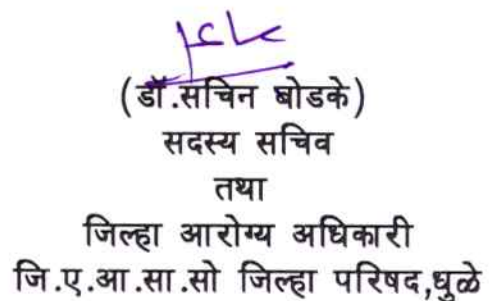 (डॉ.सचिन बोडके)
सदस्य सचिव
तथा
जिल्हा आरोग्य अधिकारी
जि.ए.आ.सा.सो जिल्हा परिषद,धुळे